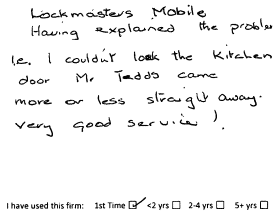 Lockmasters Mobile
Having explained the proble
i.e. I couldn't lock the Kitchen
door Mr Tedds came
more or less straight away.
very good service!
I have used this firm: 1st Time ☑ <2 yrs ☐ 2-4 yrs ☐ 5+ yrs ☐